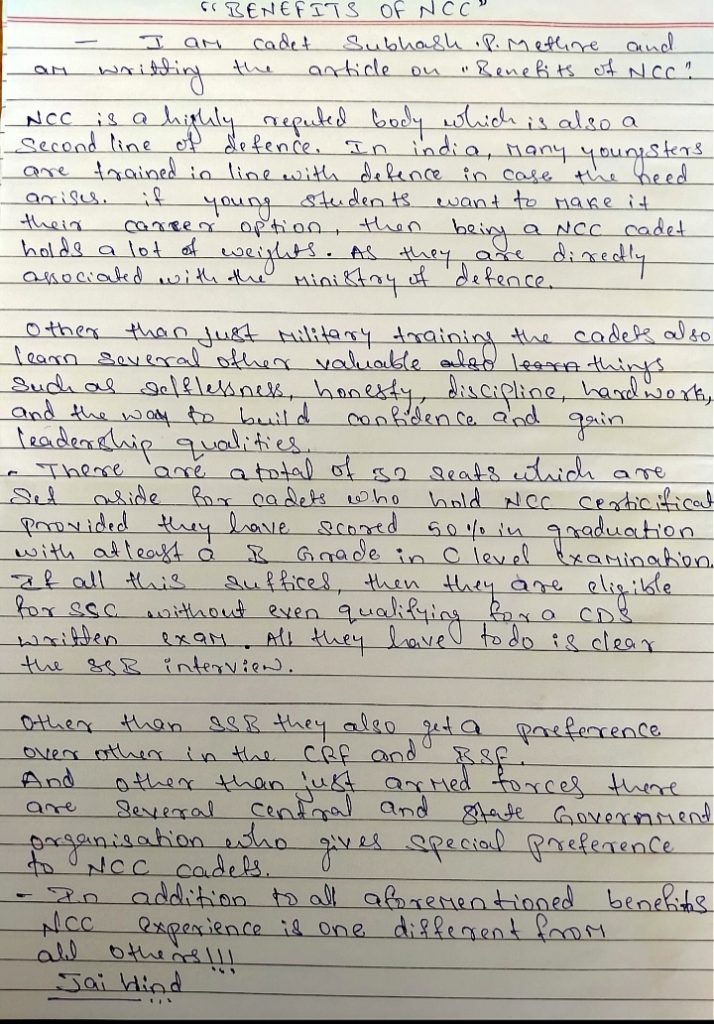 "BENEFITS OF NCC"
- I am cadet Subhash .P. Methre and
am writting the article on "Benefits of NCC".
NCC is a highly reputed body which is also a
second line of defence. In india, many youngsters
are trained in line with defence in case the need
arises. if young students want to make it
their carreer option, then being a NCC cadet
holds a lot of weights. As they are directly
associated with the ministry of defence.
Other than just military training the cadets also
learn several other valuable also learn things
such as selflessness, honesty, discipline, hardwork,
and the way to build confidence and gain
leadership qualities.
- There are a total of 32 seats which are
set aside for cadets who hold NCC certicificat
provided they have scored 50% in graduation
with atleast a B Grade in C level Examination.
If all this suffices, then they are eligible
for SSC without even qualifying for a CDS
written exam. All they have to do is clear
the SSB interview.
Other than SSB they also get a preference
over other in the CRF and BSF.
And other than just armed forces there
are several central and state Government
organisation who gives special preference
to NCC cadets.
- In addition to all aforementioned benefits
NCC experience is one different from
all others!!!
Jai Hind